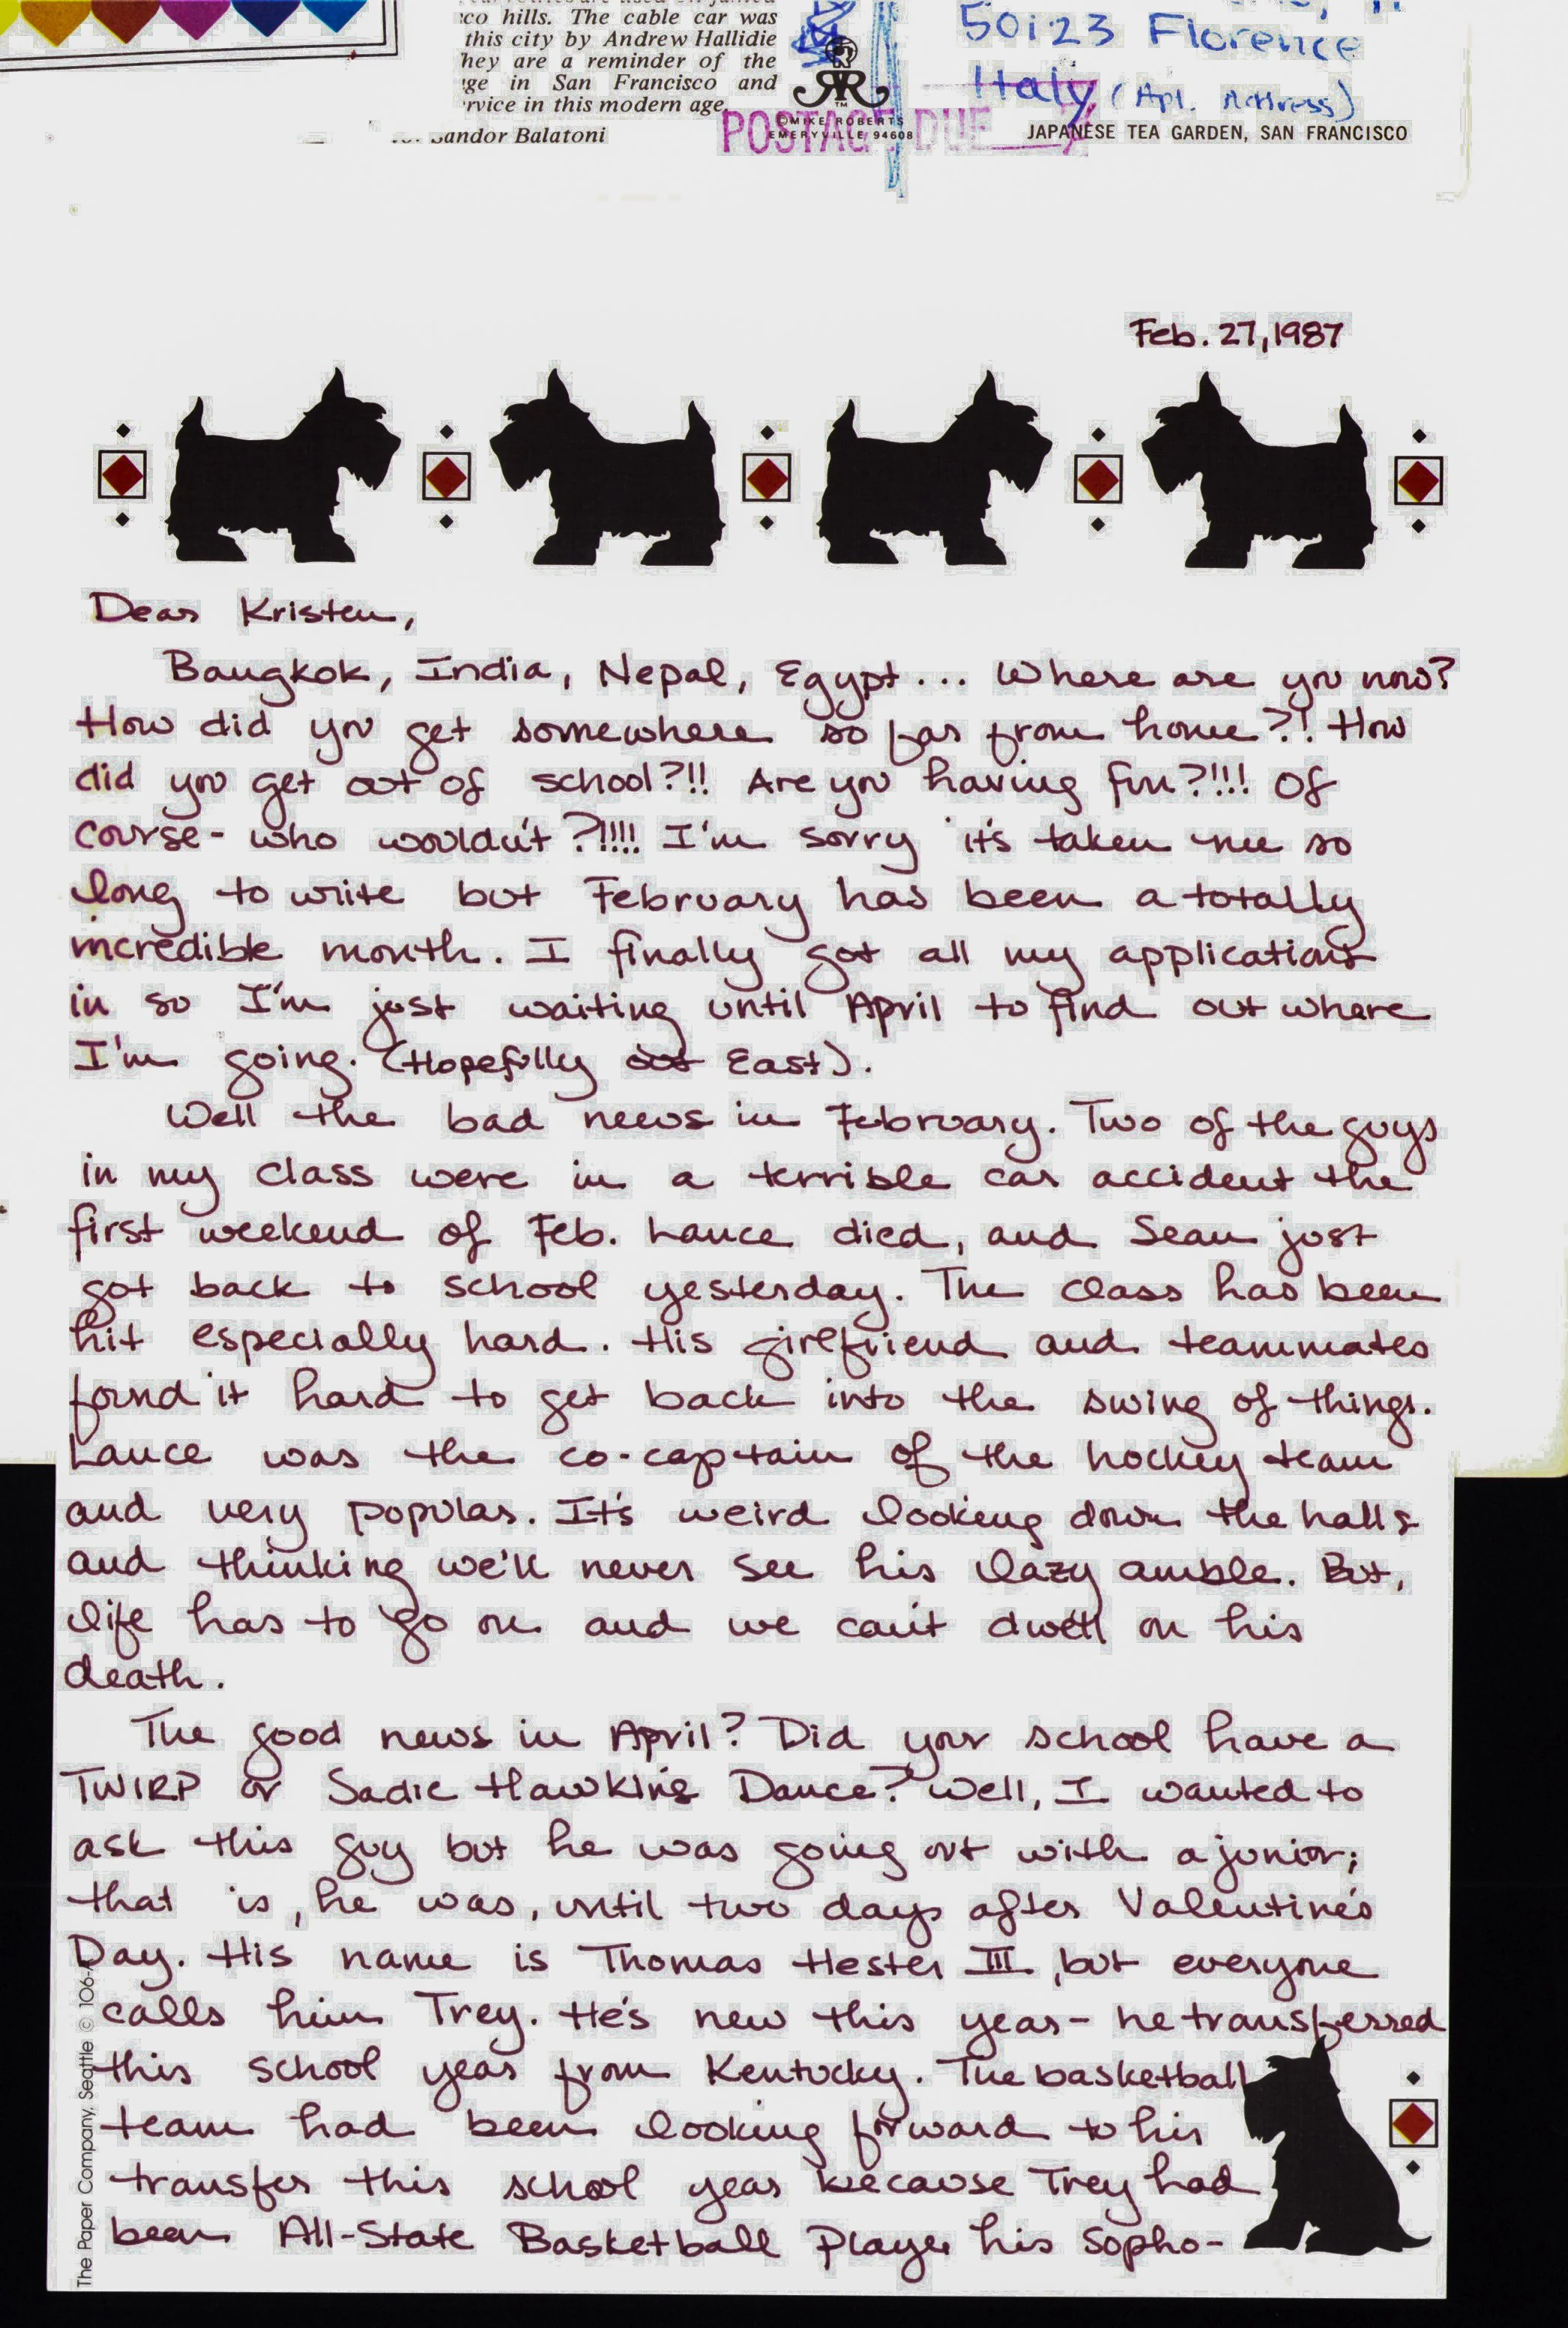 co hills. The cable car was
this city by Andrew Hallidie
hey are a reminder of the
ge in San Francisco and
rvice in this modern age.
Sandor Balatoni
©MIKE ROBERTS
EMERYVILLE 94608
POSTAGE DUE
50123 Florence
Italy (Apt. Address)
JAPANESE TEA GARDEN, SAN FRANCISCO
Feb. 27, 1987
Dear Kristen,
Bangkok, India, Nepal, Egypt... Where are you now?
How did you get somewhere so far from home?!! How
did you get out of school?!! Are you having fun?!!! Of
course- who wouldn't?!!!! I'm sorry it's taken me so
long to write but February has been a totally
incredible month. I finally got all my applications
in so I'm just waiting until April to find out where
I'm going. (Hopefully out East).
Well the bad news in February. Two of the guys
in my class were in a terrible car accident the
first weekend of Feb. Lance died, and Sean just
got back to school yesterday. The class has been
hit especially hard. His girlfriend and teammates
found it hard to get back into the swing of things.
Lance was the co-captain of the hockey team
and very popular. It's weird looking down the halls
and thinking we'll never see his lazy amble. But,
life has to go on and we can't dwell on his
death.
The good news in April? Did your school have a
TWIRP or Sadie Hawkins Dance? Well, I wanted to
ask this guy but he was going out with a junior;
that is, he was, until two days after Valentine's
Day. His name is Thomas Hester III, but everyone
calls him Trey. He's new this year- he transferred
this school year from Kentucky. The basketball
team had been looking forward to his
transfer this school year because Trey had
been All-State Basketball Player his Sopho-
The Paper Company, Seattle © 106-